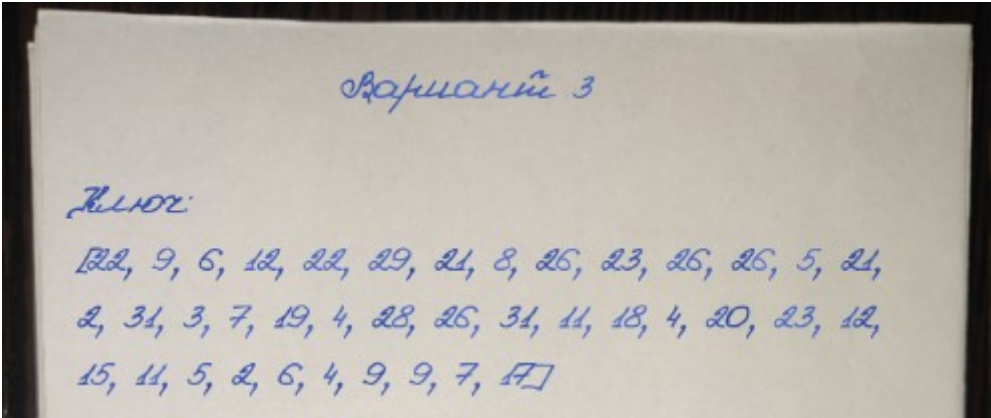 Вариант 3
Ключ:
[22, 9, 6, 12, 22, 29, 21, 8, 26, 23, 26, 26, 5, 21,
2, 31, 3, 7, 19, 4, 28, 26, 31, 11, 18, 4, 20, 23, 12,
15, 11, 5, 2, 6, 4, 9, 9, 7, 17]